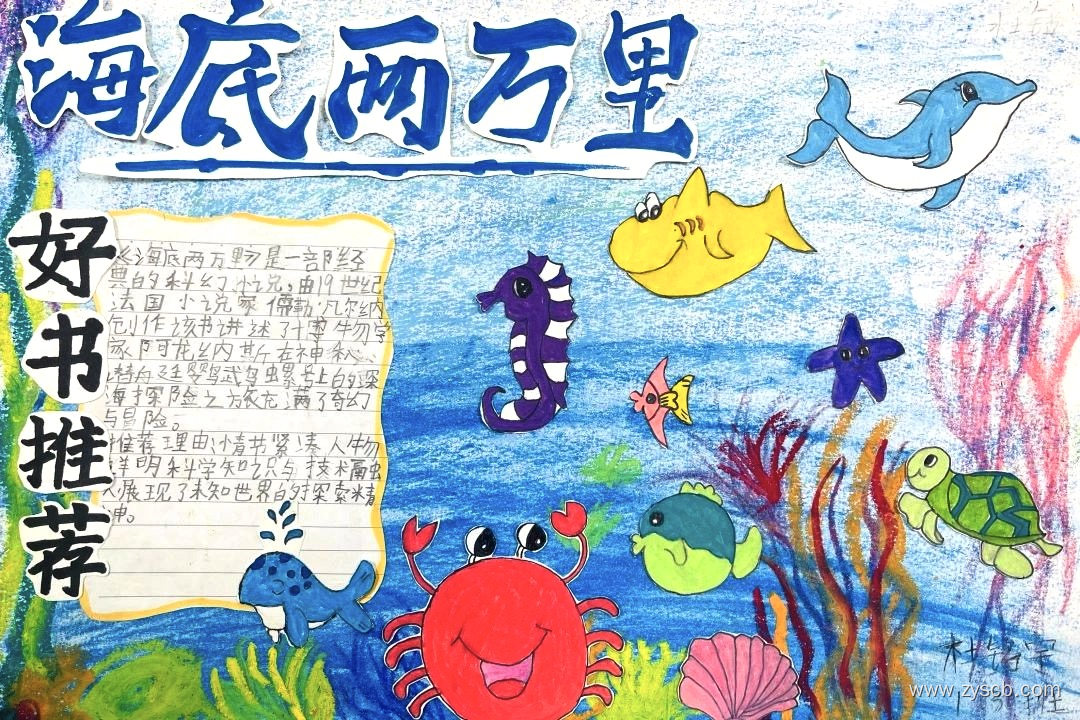 海底两万里
好书推荐
《海底两万里》是一部经
典的科幻小说，由19世纪
法国小说家儒勒·凡尔纳
创作该书讲述了博物学
家阿龙纳斯在神秘
潜舟鹦鹉螺号上的深
海探险之旅充满了奇幻
与冒险。
推荐理由：情书紧凑人物
鲜明科学知识与技术融
展现了未知世界的探索精
神。
www.zyscb.com
班